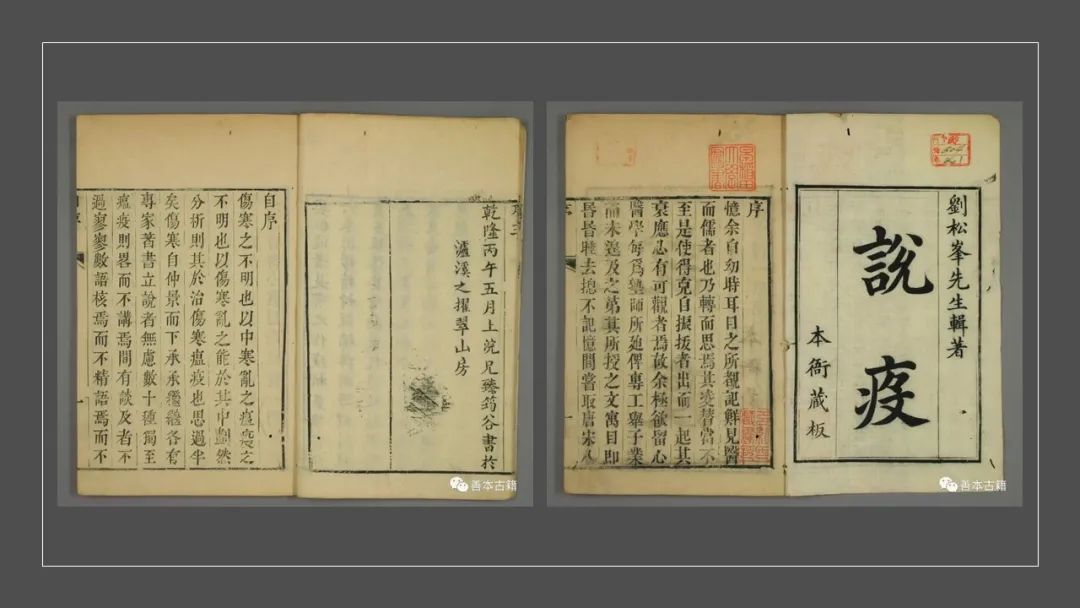 劉松峯先生輯著
說疫
本衙藏板
序
憶余自幼時耳目之所覩記鮮見醫
而儒者也乃轉而思焉其凌替當不
至是使得克自振拔者出而一起其
衰應必有可觀者焉故余極欲留心
醫學每爲塾師所廹俾專工舉子業
而未遑及之第其所授之文寓目即
昏昏睡去摠不記憶間嘗取唐宋人
善本古籍
乾隆丙午五月上浣兄臻筠谷書於
瀘溪之擢翠山房
自序
傷寒之不明也以中寒亂之瘟疫之
不明也以傷寒亂之能於其中劃然
分析則其於治傷寒瘟疫也思過半
矣傷寒自仲景而下承承繼繼各有
專家著書立說者無慮數十種獨至
瘟疫則畧而不講焉間有談及者不
過寥寥數語核焉而不精語焉而不
善本古籍